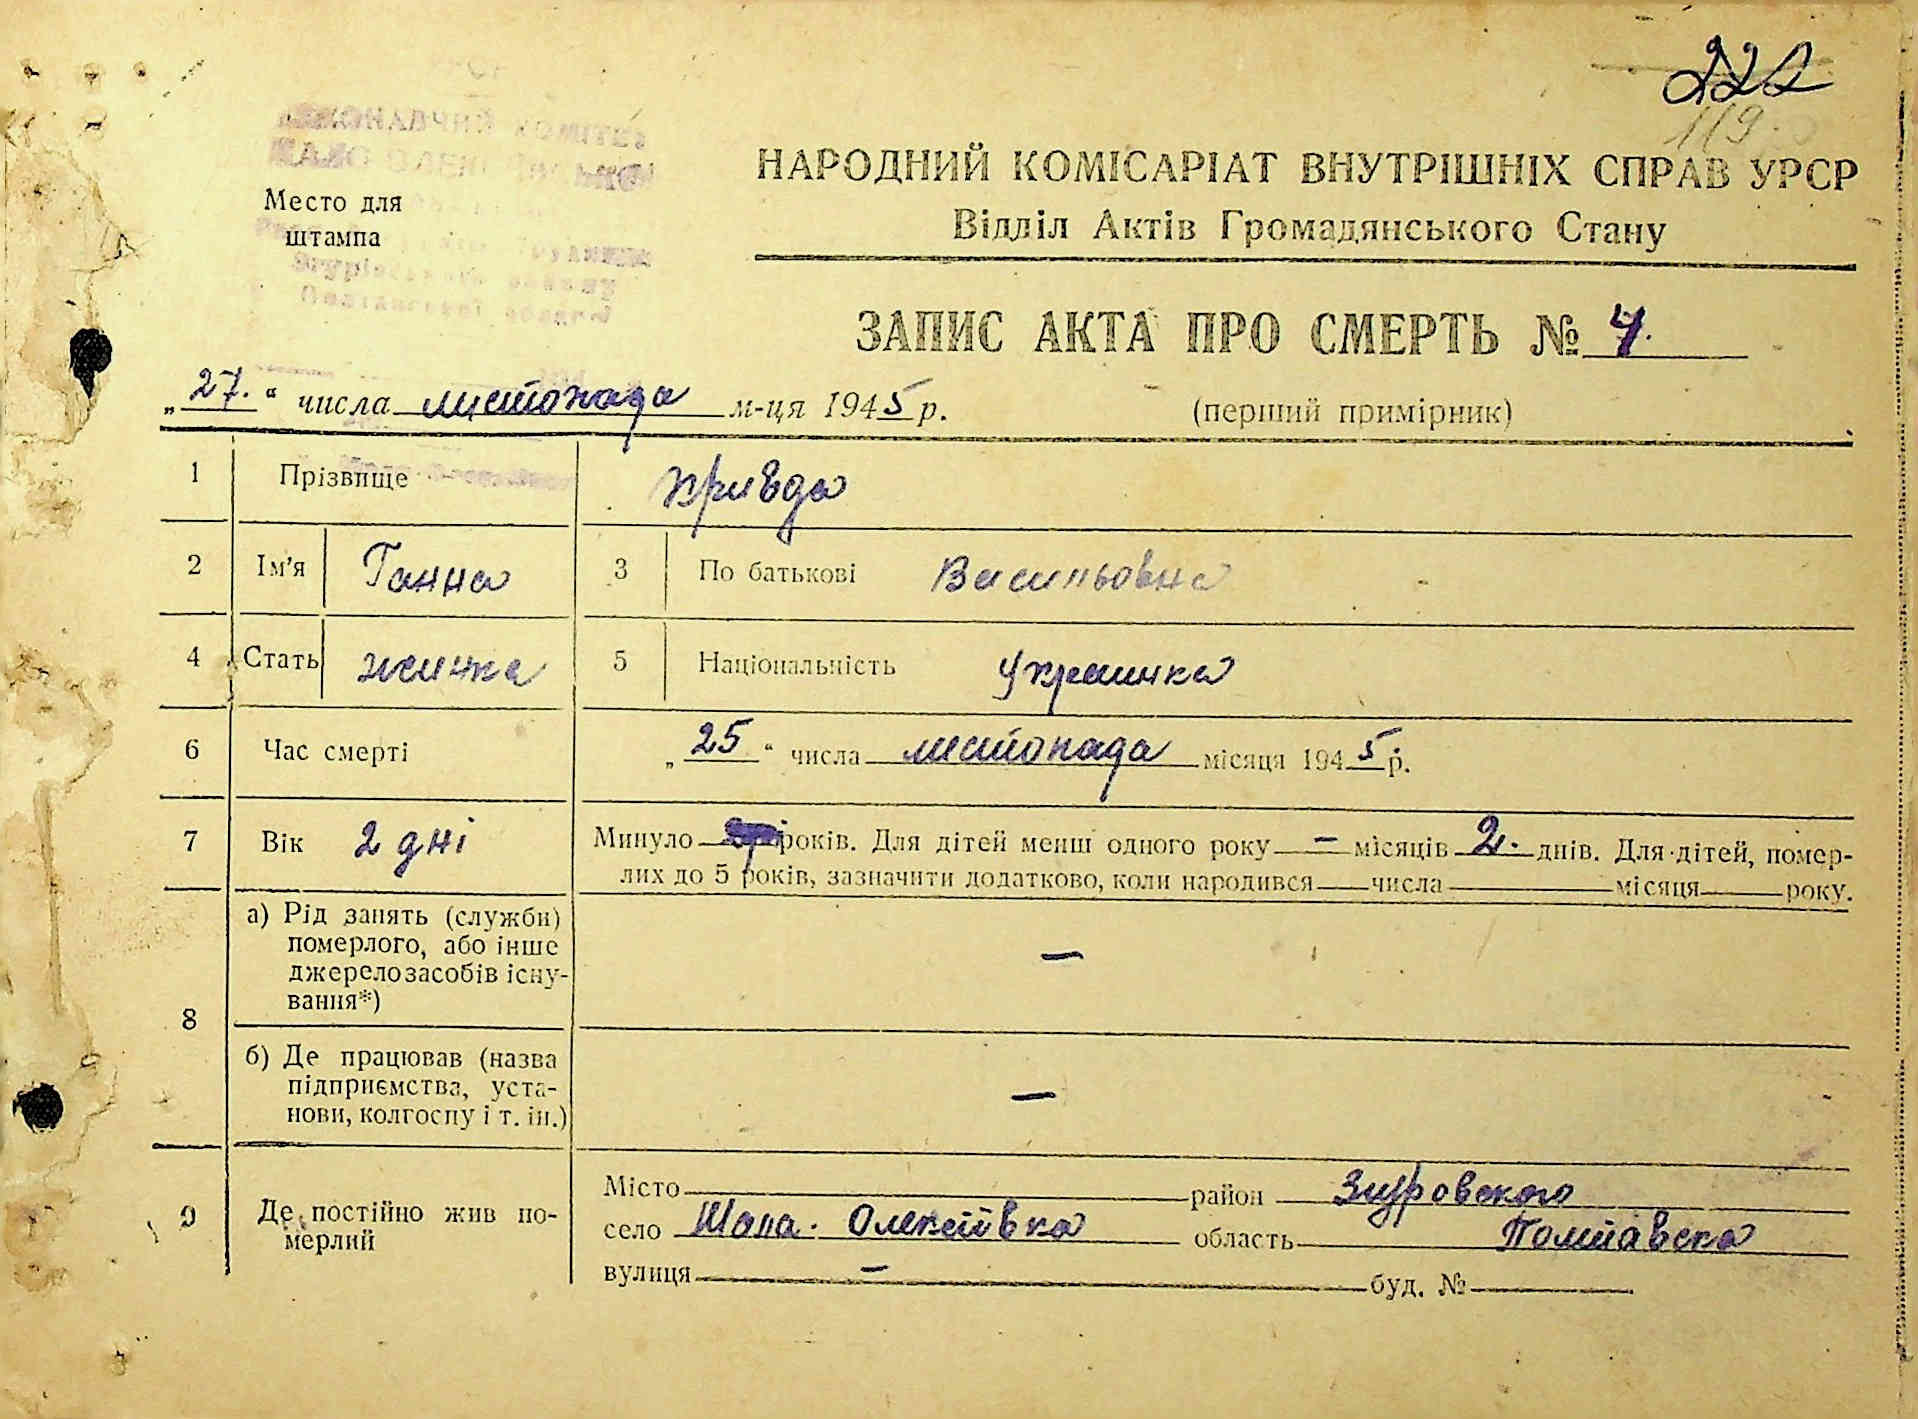 222
119
ВИКОНАВЧИЙ КОМІТЕТ
Место для
штампа
НАРОДНИЙ КОМІСАРІАТ ВНУТРІШНІХ СПРАВ УРСР
Відділ Актів Громадянського Стану
ЗАПИС АКТА ПРО СМЕРТЬ № 4.
„27.“ числа листопада м-ця 1945 р.
(перший примірник)
1 Прізвище Кривда
2 Ім'я Ганна 3 По батькові Васильовна
4 Стать жинка 5 Національність Украинка
6 Час смерті „25“ числа листопада місяця 1945 р.
7 Вік 2 дні Минуло років. Для дітей менш одного року — місяців 2. днів. Для дітей, помер-
лих до 5 років, зазначити додатково, коли народився числа місяця року.
8 а) Рід занять (служби)
померлого, або інше
джерело засобів існу-
вання*) —
б) Де працював (назва
підприємства, уста-
нови, колгоспу і т. ін.) —
9 Де постійно жив по-
мерлий
Місто район Згуровского
село Мала. Олексіївка область Полтавска
вулиця — буд. №